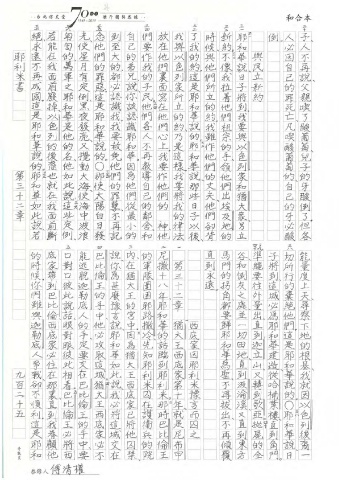 和合本
子人不再說父親喫了酸葡萄兒子的牙酸倒了但各
人必因自己的罪死亡凡喫酸葡萄的自己的牙必酸
倒
與民立新約
耶和華說日子將到我要與以色列家和猶大家另立
新約不像我拉著他們祖宗的手領他們出埃及地的
時候與他們所立的約我雖作他們的丈夫他們卻背
了我的約這是耶和華說的耶和華說那些日子以後
我與以色列家所立的約乃是這樣我要將我的律法
放在他們裏面寫在他們心上我要作他們的 神他
們要作我的子民他們各人不再教導自己的鄰舍和
自己的弟兄說你該認識耶和華因為他們從最小的
到至大的都必認識我我要赦免他們的罪孽不再記
念他們的罪惡這是耶和華說的○那使太陽白日發
光使星月有定例黑夜發亮又攪動大海使海中波浪
匉訇的萬軍之耶和華是他的名他如此說這些定例
若能在我面前廢掉以色列的後裔也就在我面前斷
絕永遠不再成國這是耶和華說的耶和華如此說若
能量度上天尋察下地的根基我就因以色列後裔一
切所行的棄絕他們這是耶和華說的○耶和華說日
子將到這城必為耶和華建造從哈楠業樓直到角門
準繩要往外量出直到迦立山又轉到歌亞拋屍的全
谷和倒灰之處並一切田地直到汲淪溪又直到東方
馬門的拐角都要歸耶和華為聖不再拔出不再傾覆
直到永遠
第三十二章 猶大王西底家第十年就是尼布甲
尼撒十八年耶和華的話臨到耶利米那時巴比倫王
的軍隊圍困耶路撒冷先知耶利米囚在護衛兵的院
內在猶大王的宮中因為猶大王西底家已將他囚禁
說你為甚麼預言說耶和華如此說我必將這城交在
巴比倫王的手中他必攻取這城猶大王西底家必不
能逃脫迦勒底人的手定要交在巴比倫王的手中要
口對口彼此說話眼對眼彼此相看巴比倫王必將西
底家帶到巴比倫他必在那裏直到我眷顧他
的時候你們雖與迦勒底人爭戰卻不順利這是耶和
耶利米書 第三十二章 九百二十五
70